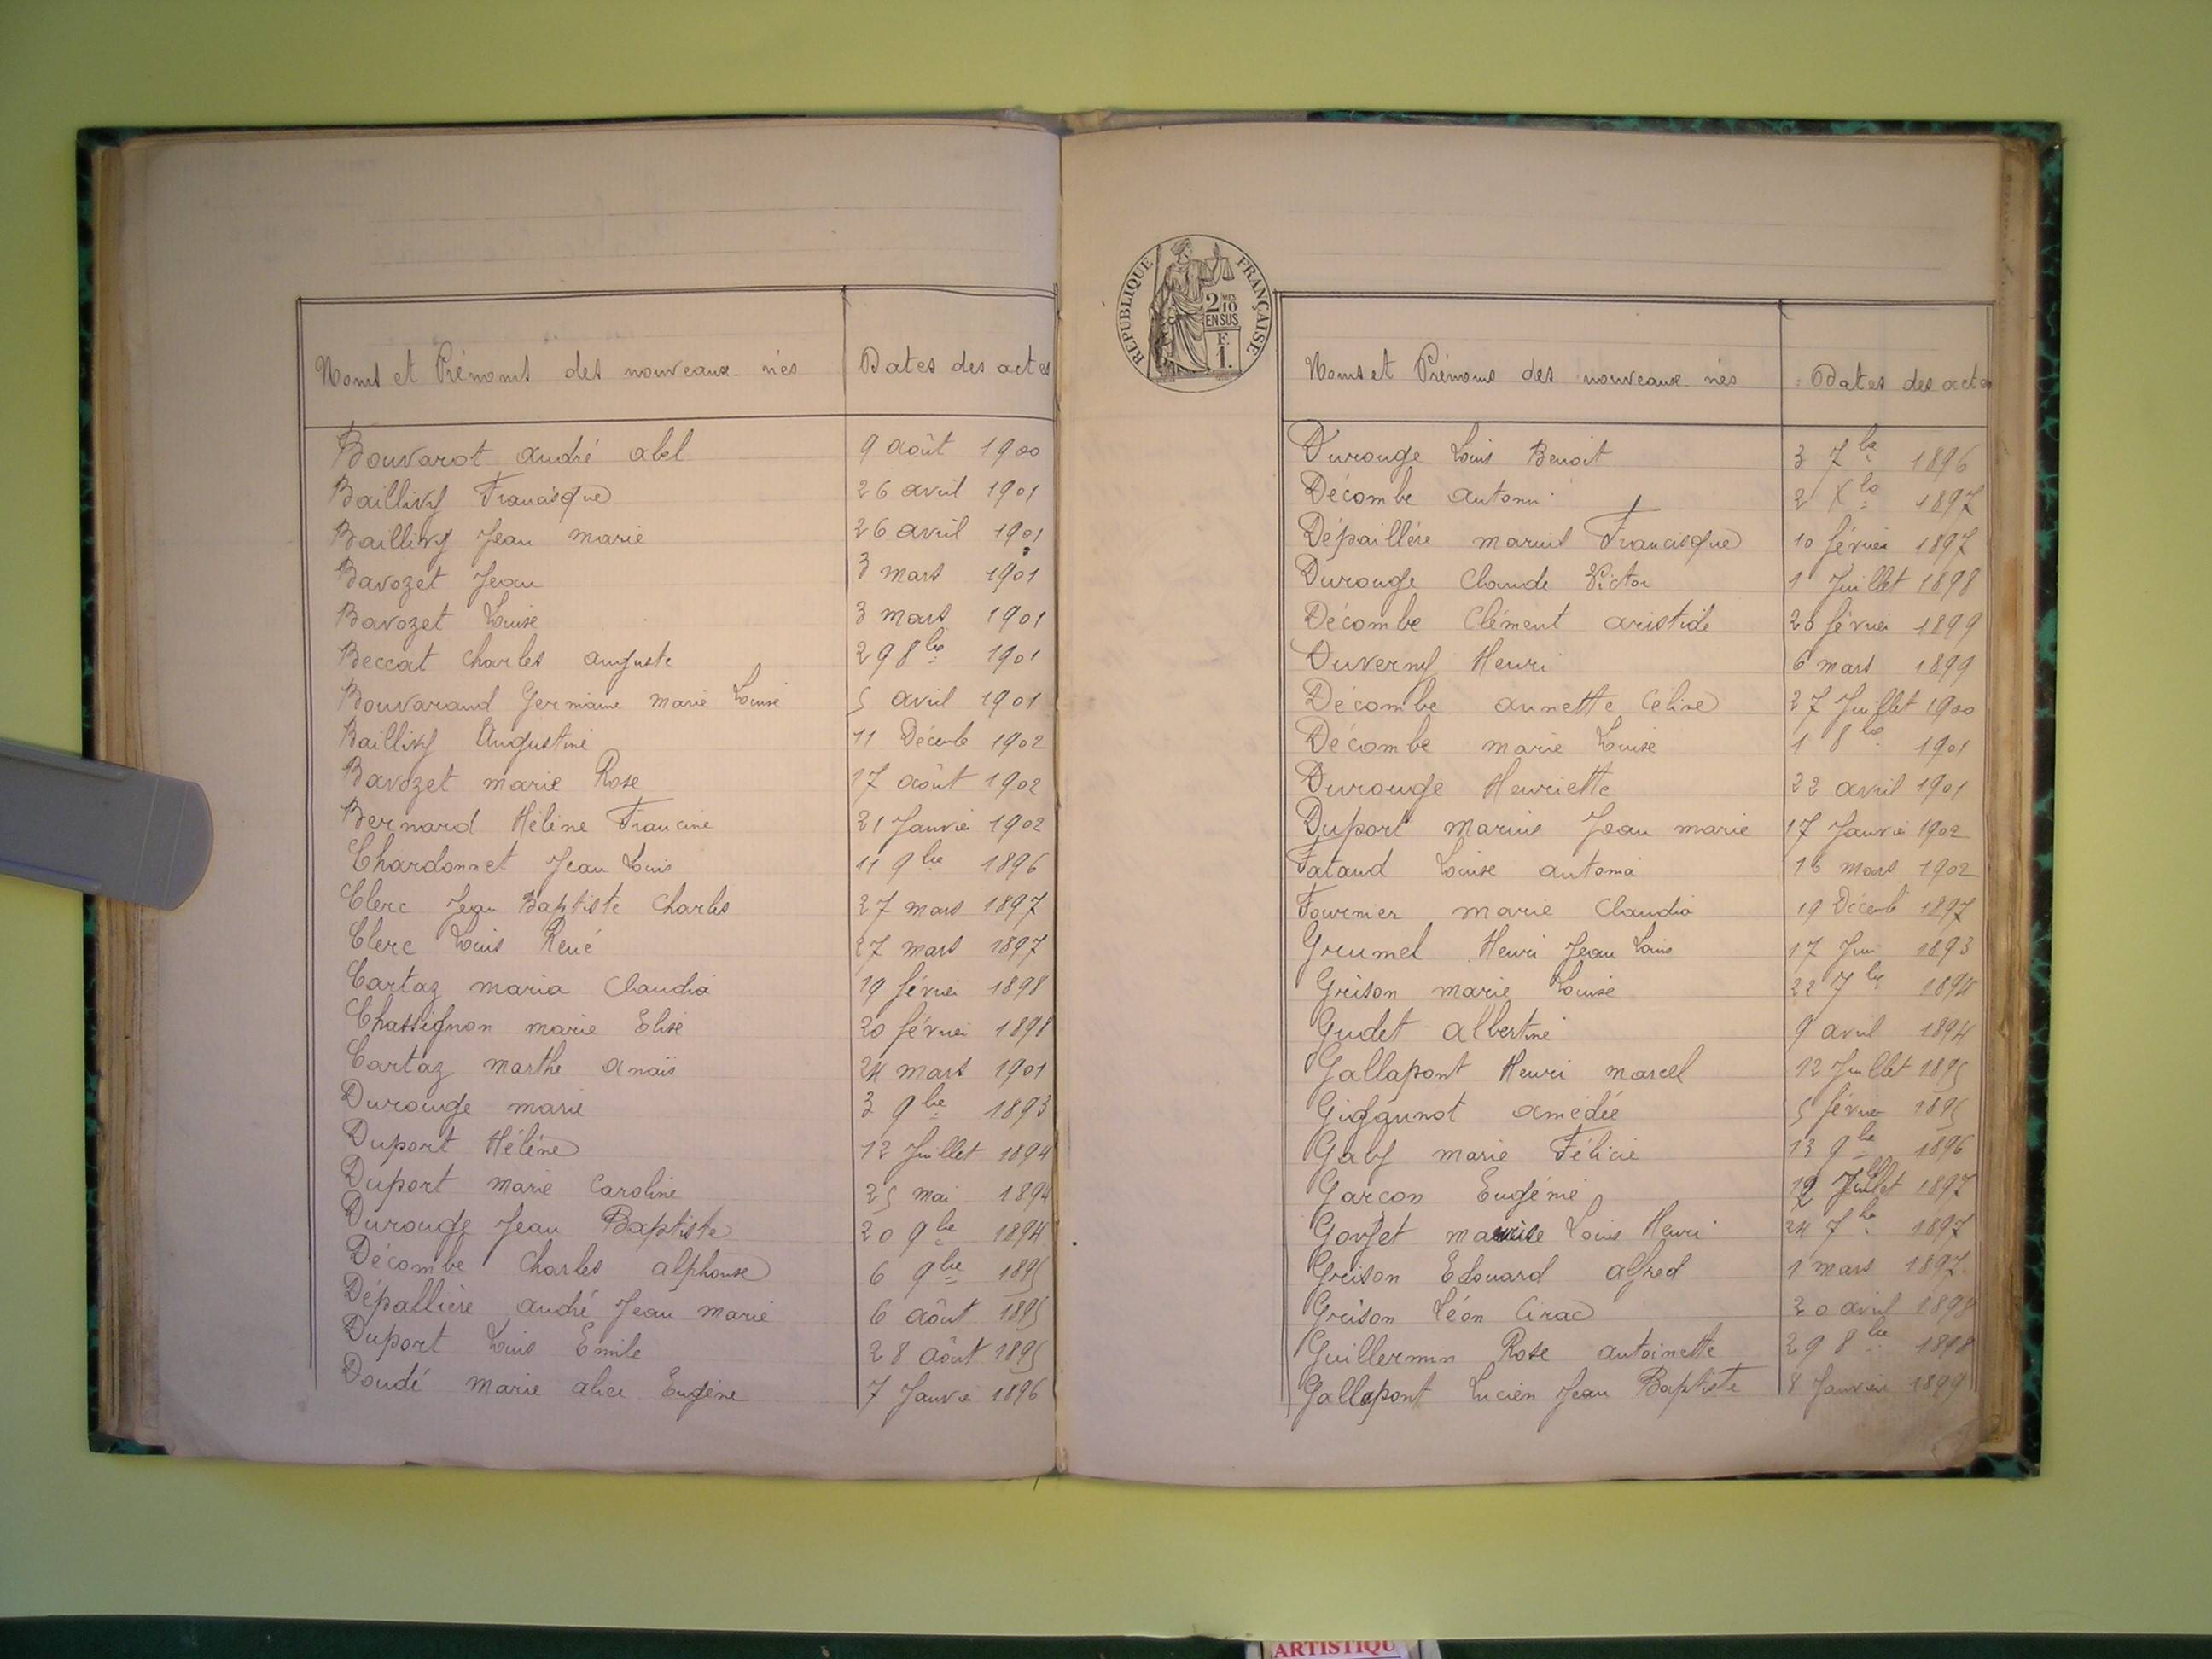 Noms et Prénoms des nouveaux-nés Dates des actes
Bouvarot André Abel 9 août 1900
Baillivy Francisque 26 avril 1901
Baillivy Jean Marie 26 avril 1901
Bavozet Jean 3 mars 1901
Bavozet Louise 3 mars 1901
Beccat Charles Auguste 29 8bre 1901
Bouvarand Germaine Marie Louise 5 avril 1901
Baillivy Augustine 11 Décemb 1902
Bavozet Marie Rose 17 août 1902
Bernard Hélène Francine 21 Janvier 1902
Chardonnet Jean Louis 11 9bre 1896
Clerc Jean Baptiste Charles 27 mars 1897
Clerc Louis René 27 mars 1897
Cartaz Maria Claudia 19 février 1898
Chassignon Marie Elise 20 février 1898
Cartaz Marthe Anaïs 24 mars 1901
Durouge Marie 3 9bre 1893
Duport Hélène 12 Juillet 1894
Duport Marie Caroline 25 mai 1894
Durouge Jean Baptiste 20 9bre 1894
Décombe Charles Alphonse 6 9bre 1895
Dépallière André Jean Marie 6 août 1895
Duport Louis Emile 28 août 1895
Doudé Marie Alice Eugène 7 Janvier 1896
RÉPUBLIQUE FRANÇAISE
2 MES 10
EN SUS
F.
1.
Noms et Prénoms des nouveaux-nés Dates des actes
Durouge Louis Benoit 3 7bre 1896
Décombe Antonin 2 Xbre 1897
Dépaillére Marius Francisque 10 février 1897
Durouge Claude Victor 1 Juillet 1898
Décombe Clément Aristide 20 février 1899
Duverny Henri 6 mars 1899
Décombe Annette Céline 27 Juillet 1900
Décombe Marie Louise 1 8bre 1901
Durouge Henriette 22 avril 1901
Duport Marius Jean Marie 17 Janvier 1902
Fataud Louise Antonia 16 mars 1902
Fournier Marie Claudia 19 Décemb 1897
Grumel Henri Jean Louis 17 Juin 1893
Grison Marie Louise 22 7bre 1894
Gudet Albertine 9 avril 1894
Gallapont Henri Marcel 12 Juillet 1895
Gigaunot Amédée 5 février 1895
Gaby Marie Félicie 13 9bre 1896
Garcon Eugénie 12 Juillet 1897
Gorjet Maurice Louis Henri 24 7bre 1897
Grison Edouard Alfred 1 mars 1897
Grison Léon Cirac 20 avril 1898
Guillermin Rose Antoinette 29 8bre 1898
Gallapont Lucien Jean Baptiste 8 Janvier 1899
ARTISTIQU